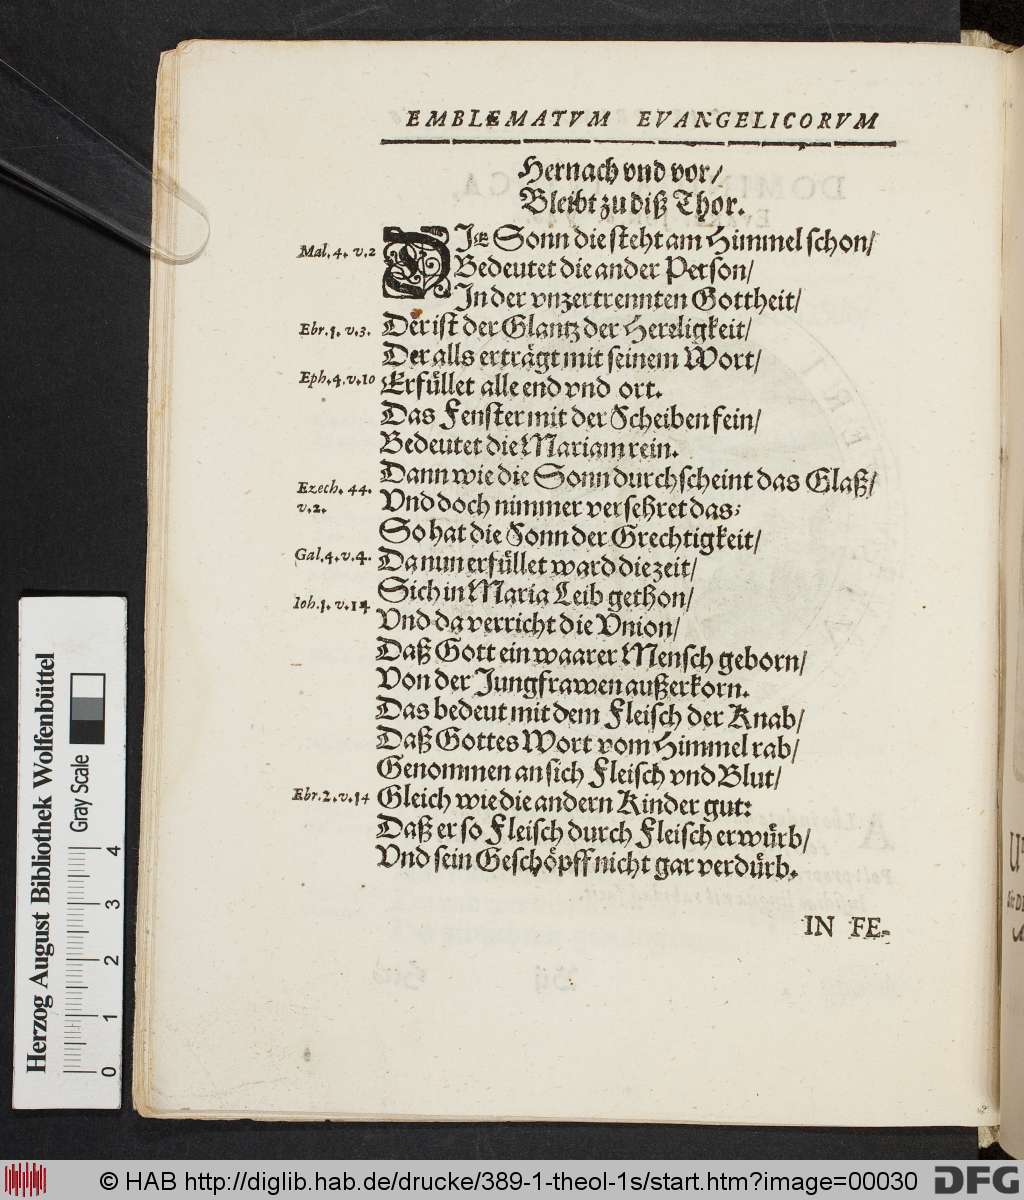 EMBLEMATVM EVANGELICORVM
Hernach vnd vor/
Bleibt zu diß Thor.
Mal. 4. v. 2
DIE Sonn die steht am Himmel schon/
Bedeutet die ander Person/
In der vnzertrennten Gottheit/
Ebr. 1. v. 3.
Der ist der Glantz der Herrligkeit/
Der alls erträgt mit seinem Wort/
Eph. 4. v. 10
Erfüllet alle end vnd ort.
Das Fenster mit der Scheiben fein/
Bedeutet die Mariam rein.
Dann wie die Sonn durchscheint das Glaß/
Ezech. 44.
v. 2.
Vnd doch nimmer versehret das;
So hat die Sonn der Grechtigkeit/
Gal. 4. v. 4.
Da nun erfüllet ward die zeit/
Sich in Maria Leib gethon/
Ioh. 1. v. 14
Vnd da verricht die Vnion/
Daß Gott ein waarer Mensch geborn/
Von der Jungfrawen außerkorn.
Das bedeut mit dem Fleisch der Knab/
Daß Gottes Wort vom Himmel rab/
Genommen an sich Fleisch vnd Blut/
Ebr. 2. v. 14
Gleich wie die andern Kinder gut:
Daß er so Fleisch durch Fleisch erwürb/
Vnd sein Geschöpff nicht gar verdürb.
IN FE-
Herzog August Bibliothek Wolfenbüttel
Gray Scale
0 1 2 3 4
© HAB http://diglib.hab.de/drucke/389-1-theol-1s/start.htm?image=00030
DFG